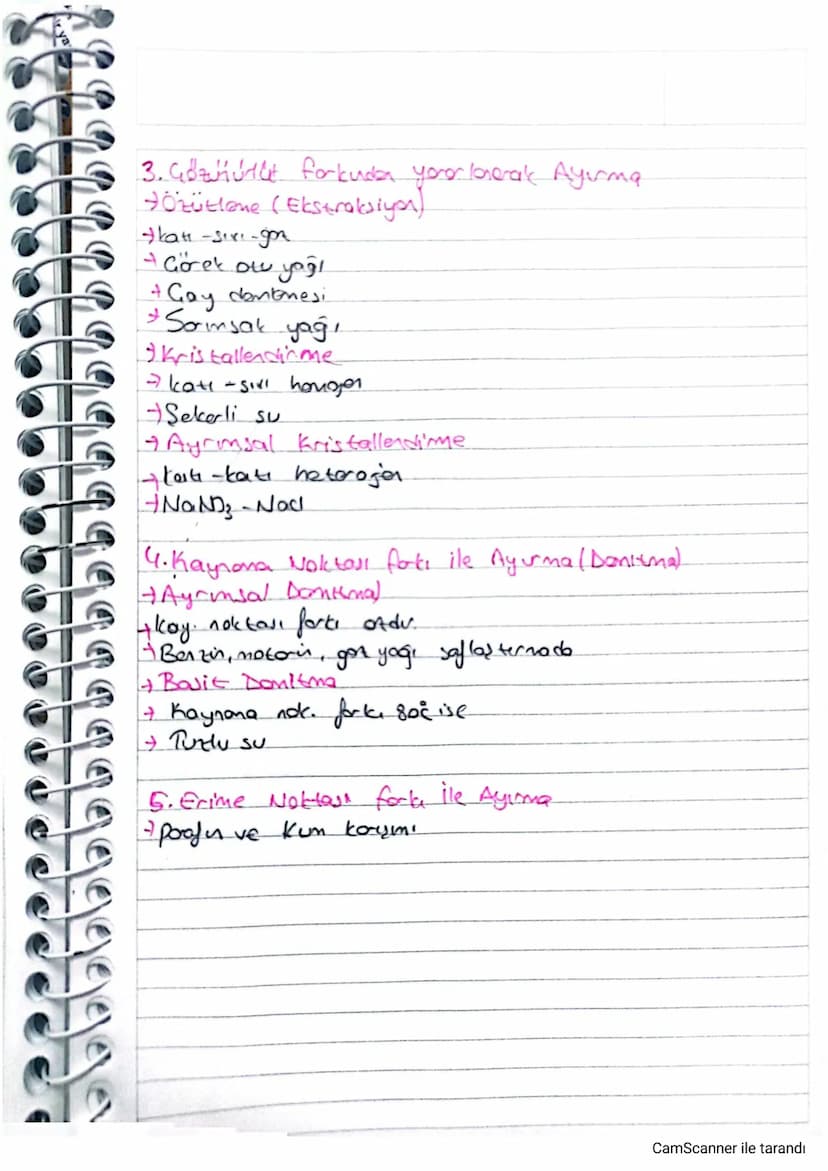 3. Çözünürlük farkından yararlanarak Ayırma
→ Özütleme (Ekstraksiyon)
→ katı -sıvı -gaz
→ Çörek otu yağı
→ Çay demlenmesi
→ Sarımsak yağı
→ Kristallendirme
→ katı -sıvı homojen
→ Şekerli su
→ Ayrımsal Kristallendirme
→ katı -katı heterojen
→ NaNO3 - NaCl
4. Kaynama Noktası farkı ile Ayırma (Damıtma)
→ Ayrımsal Damıtma)
→ kay. noktası farkı azdır.
→ Benzin, motorin, gaz yağı saflaştırmada
→ Basit Damıtma
→ Kaynama nok. farkı
→ Tuzlu su
5. Erime Noktası farkı ile Ayırma
→ parafin ve kum karışımı
CamScanner ile tarandı